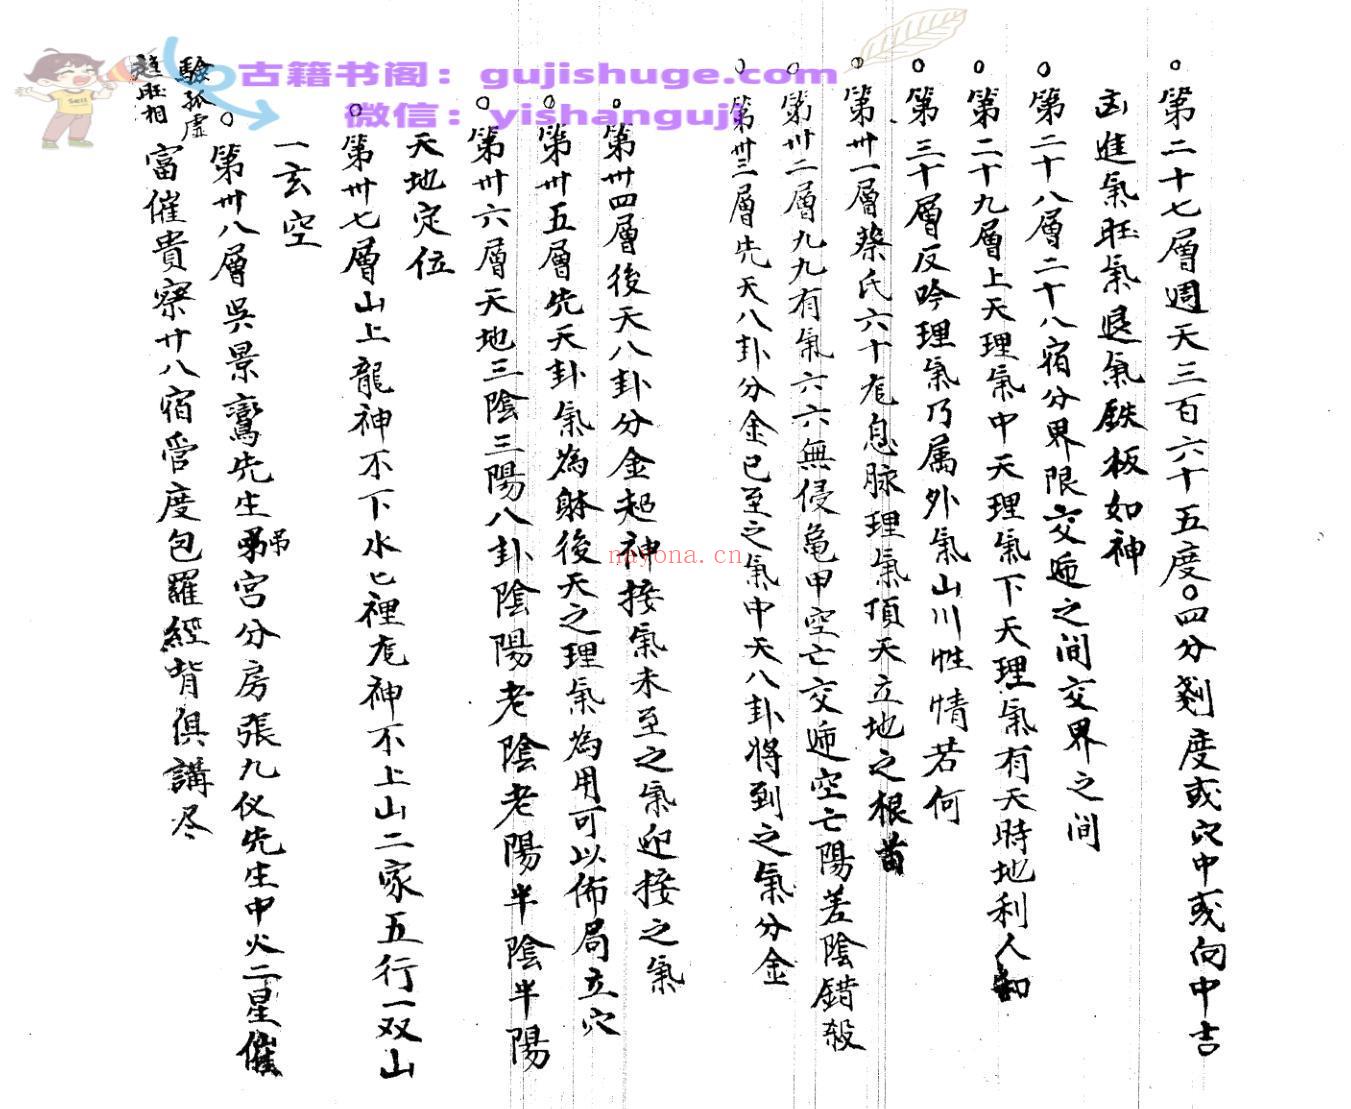 古籍书阁：gujishuge.com
微信：yishanguji
nayona.cn
Sell
○第二十七層週天三百六十五度○四分剗度或穴中或向中吉
凶進氣旺氣退氣鉄板如神
○第二十八層二十八宿分界限交逓之間交界之间
○第二十九層上天理氣中天理氣下天理氣有天時地利人和
○第三十層反吟理氣乃属外氣山川性情若何
○第卅一層蔡氏六十尨息脉理氣頂天立地之根苗
○第卅二層九九有氣六六無侵亀甲空亡交逓空亡陽差陰錯殺
○第卅三層先天八卦分金已至之氣中天八卦将到之氣分金
○第卅四層後天八卦分金起神接氣未至之氣迎接之氣
○第卅五層先天卦氣為躰後天之理氣為用可以佈局立穴
○第卅六層天地三陰三陽八卦陰陽老陰老陽半陰半陽
天地定位
○第卅七層山上龍神不下水匕裡尨神不上山二家五行一双山
一玄空
○第卅八層吳景鸞先生弔宫分房張九仪先生中火二星催
富催貴察廿八宿管度包羅經背俱講尽
驗孤虛
趕旺相